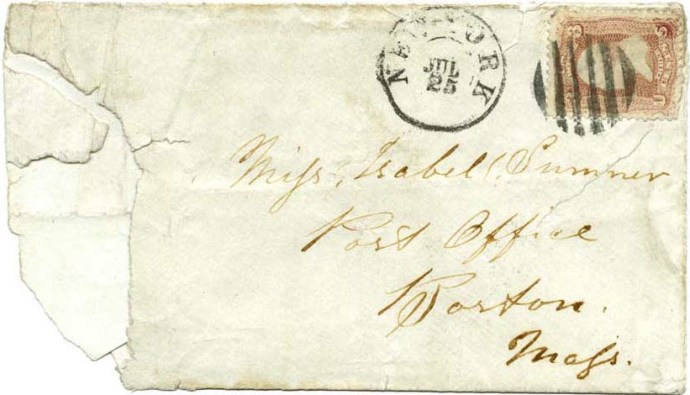 NEW-YORK
JUL
25
3 3
Miss, Isabel, Sumner
Post Office
Boston.
Mass.